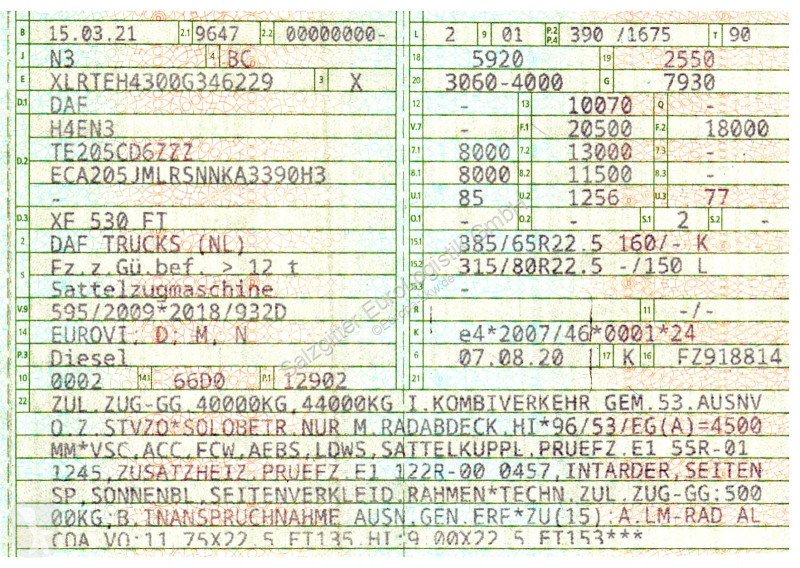 B 15.03.21 2.1 9647 2.2 00000000- L 2 9 01 P.2 P.4 390 /1675 T 90
J N3 4 BC 18 5920 19 2550
E XLRTEH4300G346229 3 X 20 3060-4000 G 7930
D.1 DAF 12 - 13 10070 Q -
H4EN3 V.7 - F.1 20500 F.2 18000
D.2 TE205CD6ZZZ 7.1 8000 7.2 13000 7.3 -
ECA205JMLRSNNKA3390H3 8.1 8000 8.2 11500 8.3 -
- U.1 85 U.2 1256 U.3 77
D.3 XF 530 FT O.1 - O.2 - S.1 2 S.2 -
2 DAF TRUCKS (NL) 15.1 385/65R22.5 160/- K
5 Fz.z.Gü.bef. > 12 t 15.2 315/80R22.5 -/150 L
Sattelzugmaschine 15.3 -
V.9 595/2009*2018/932D R 11 -/-
14 EUROVI; D; M, N K e4*2007/46*0001*24
P.3 Diesel 6 07.08.20 17 K 16 FZ918814
10 0002 14.1 66D0 P.1 12902 21
22 ZUL.ZUG-GG.40000KG,44000KG I.KOMBIVERKEHR GEM.53.AUSNV
O.Z.STVZO*SOLOBETR.NUR M.RADABDECK.HI*96/53/EG(A)=4500
MM*VSC,ACC,FCW,AEBS,LDWS,SATTELKUPPL.PRUEFZ.E1 55R-01
1245,ZUSATZHEIZ.PRUEFZ.E1 122R-00 0457,INTARDER,SEITEN
SP,SONNENBL,SEITENVERKLEID.RAHMEN*TECHN.ZUL.ZUG-GG:500
00KG;B.INANSPRUCHNAHME AUSN.GEN.ERF*ZU(15):A.LM-RAD AL
COA VO:11.75X22.5 ET135,HI:9.00X22.5 ET153***
Salzgitter Eurologistik GmbH